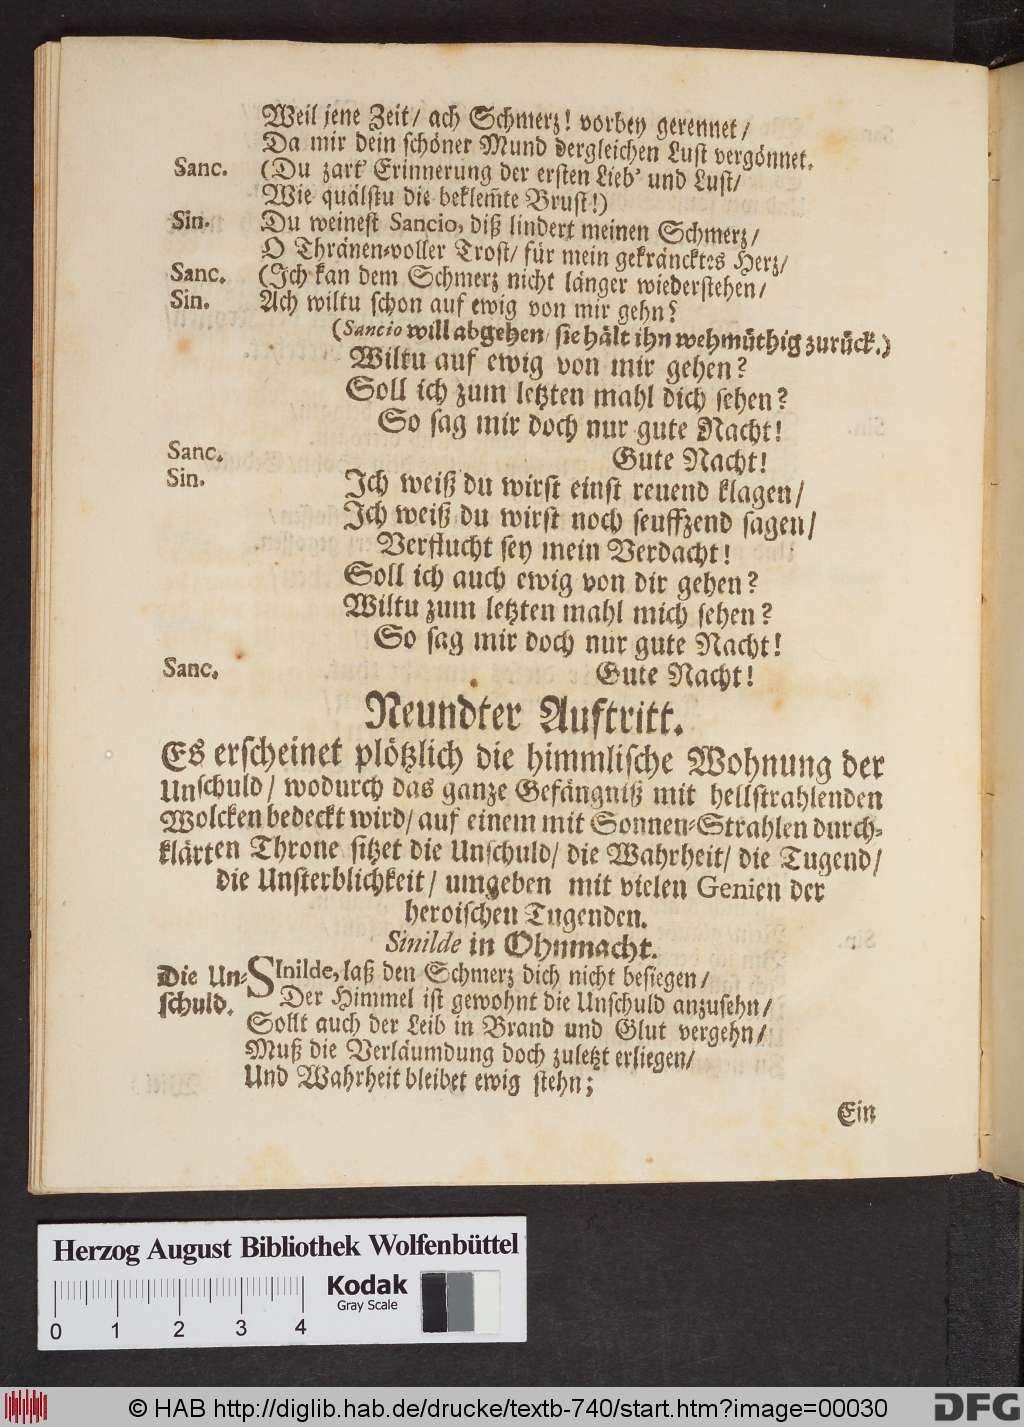 Weil jene Zeit/ ach Schmerz! vorbey gerennet/
Da mir dein schöner Mund dergleichen Lust vergönnet.
Sanc. (Du zart' Erinnerung der ersten Lieb' und Lust/
Wie quälstu die beklem̃te Brust!)
Sin. Du weinest Sancio, diß lindert meinen Schmerz/
O Thränen-voller Trost/ für mein gekräncktes Herz/
Sanc. (Ich kan dem Schmerz nicht länger wiederstehen/
Sin. Ach wiltu schon auf ewig von mir gehn?
(Sancio will abgehen/ sie hält ihn wehmüthig zurück.)
Wiltu auf ewig von mir gehen?
Soll ich zum letzten mahl dich sehen?
So sag mir doch nur gute Nacht!
Sanc. Gute Nacht!
Sin. Ich weiß du wirst einst reuend klagen/
Ich weiß du wirst noch seuffzend sagen/
Verflucht sey mein Verdacht!
Soll ich auch ewig von dir gehen?
Wiltu zum letzten mahl mich sehen?
So sag mir doch nur gute Nacht!
Sanc. Gute Nacht!
Neundter Auftritt.
Es erscheinet plötzlich die himmlische Wohnung der
Unschuld/ wodurch das ganze Gefängniß mit hellstrahlenden
Wolcken bedeckt wird/ auf einem mit Sonnen-Strahlen durch-
klärten Throne sitzet die Unschuld/ die Wahrheit/ die Tugend/
die Unsterblichkeit/ umgeben mit vielen Genien der
heroischen Tugenden.
Sinilde in Ohnmacht.
Die Un- SInilde, laß den Schmerz dich nicht besiegen/
schuld. Der Himmel ist gewohnt die Unschuld anzusehn/
Sollt auch der Leib in Brand und Glut vergehn/
Muß die Verläumdung doch zuletzt erliegen/
Und Wahrheit bleibet ewig stehn;
Ein
Herzog August Bibliothek Wolfenbüttel
Kodak
Gray Scale
0 1 2 3 4
© HAB http://diglib.hab.de/drucke/textb-740/start.htm?image=00030
DFG